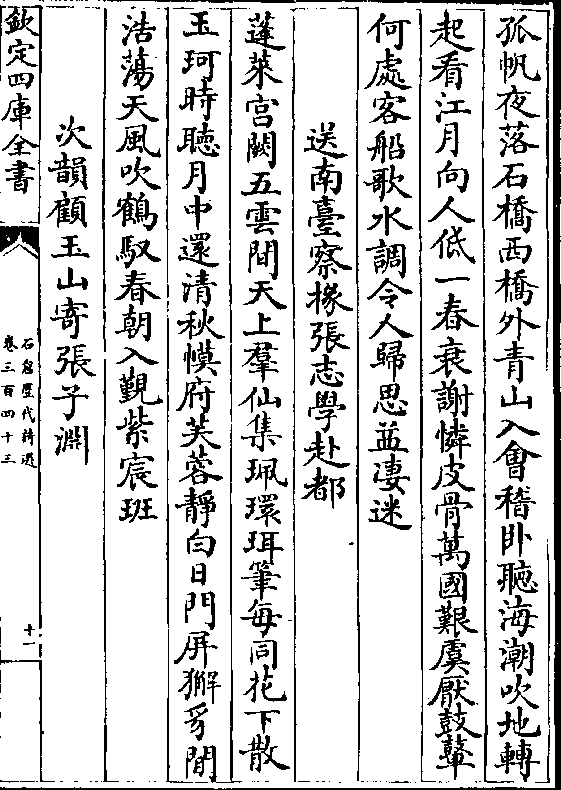 孤帆夜落石橋西橋外青山入會稽卧聽海潮吹地轉
起看江月向人低一春衰謝憐皮骨萬國艱虞厭鼓鼙
何處客船歌水調令人歸思益凄迷
送南臺察掾張志學赴都
蓬萊宫闕五雲間天上羣仙集珮環珥筆每同花下散
玉珂時聽月中還清秋幙府芙蓉靜白日門屏獬豸閒
浩蕩天風吹鶴馭春朝入覲紫宸班
次韻顧玉山寄張子淵
欽定四庫全書
石倉歷代詩選
卷三百四十三
十一